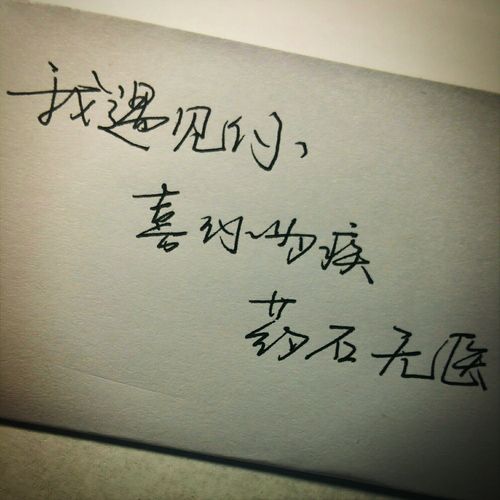 我遇见你、
喜你如疾
药石无医